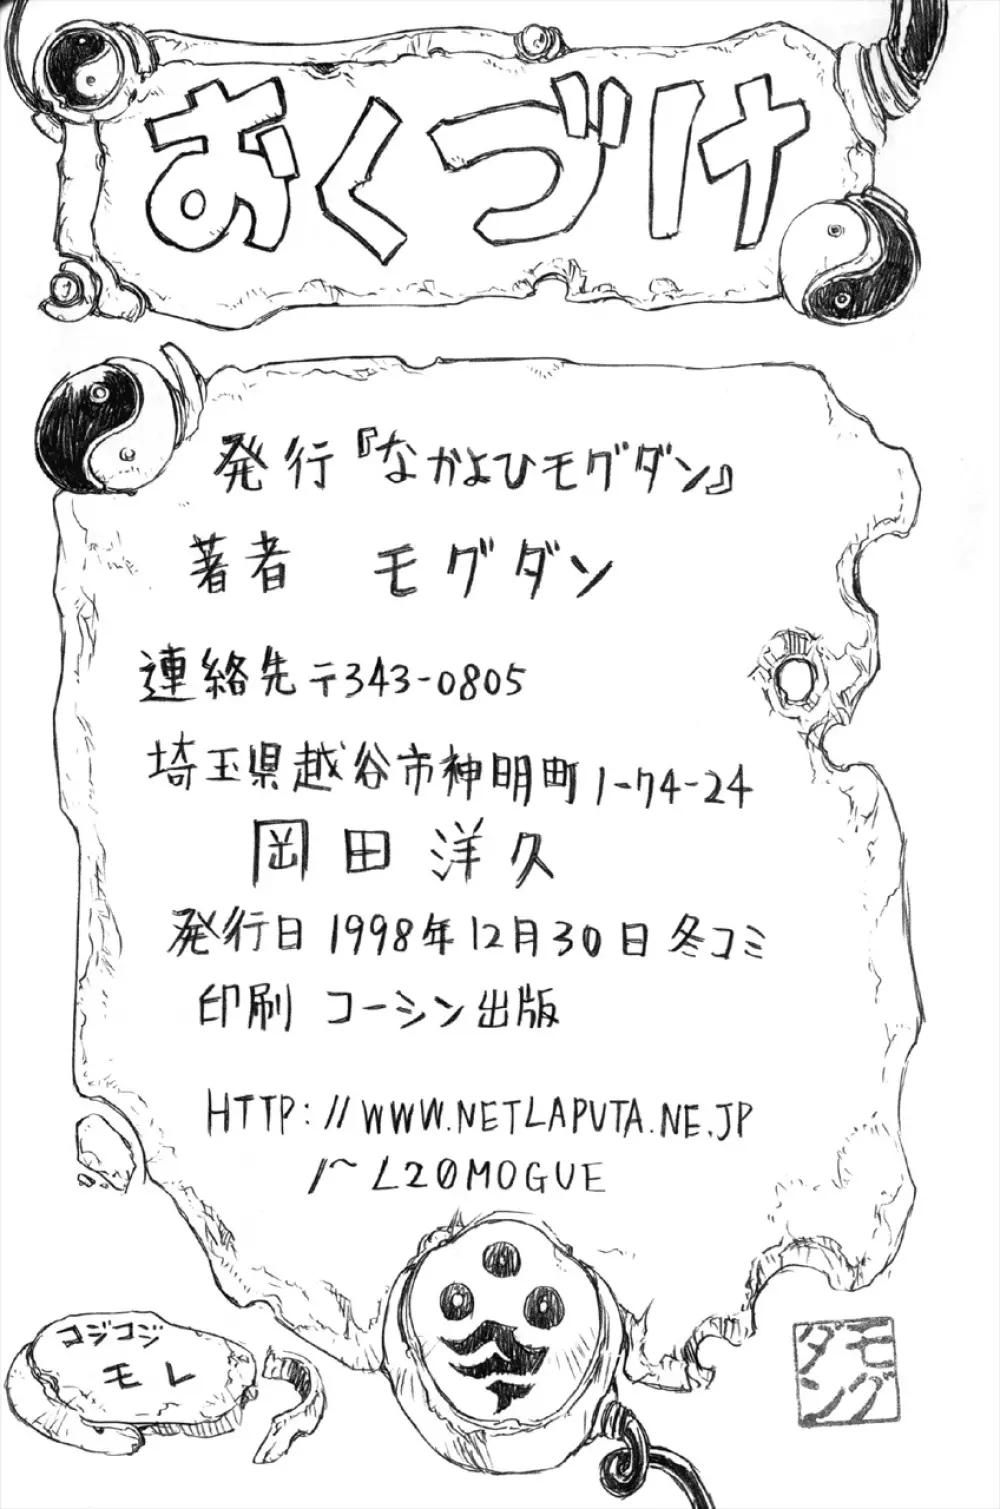 おくづけ
発行『なかよひモグダン』
著者 モグダン
連絡先〒343-0805
埼玉県越谷市神明町1-74-24
岡田洋久
発行日 1998年12月30日 冬コミ
印刷 コーシン出版
HTTP://WWW.NETLAPUTA.NE.JP
/~L20MOGUE
コジコジ
モレ
モグ
ダン